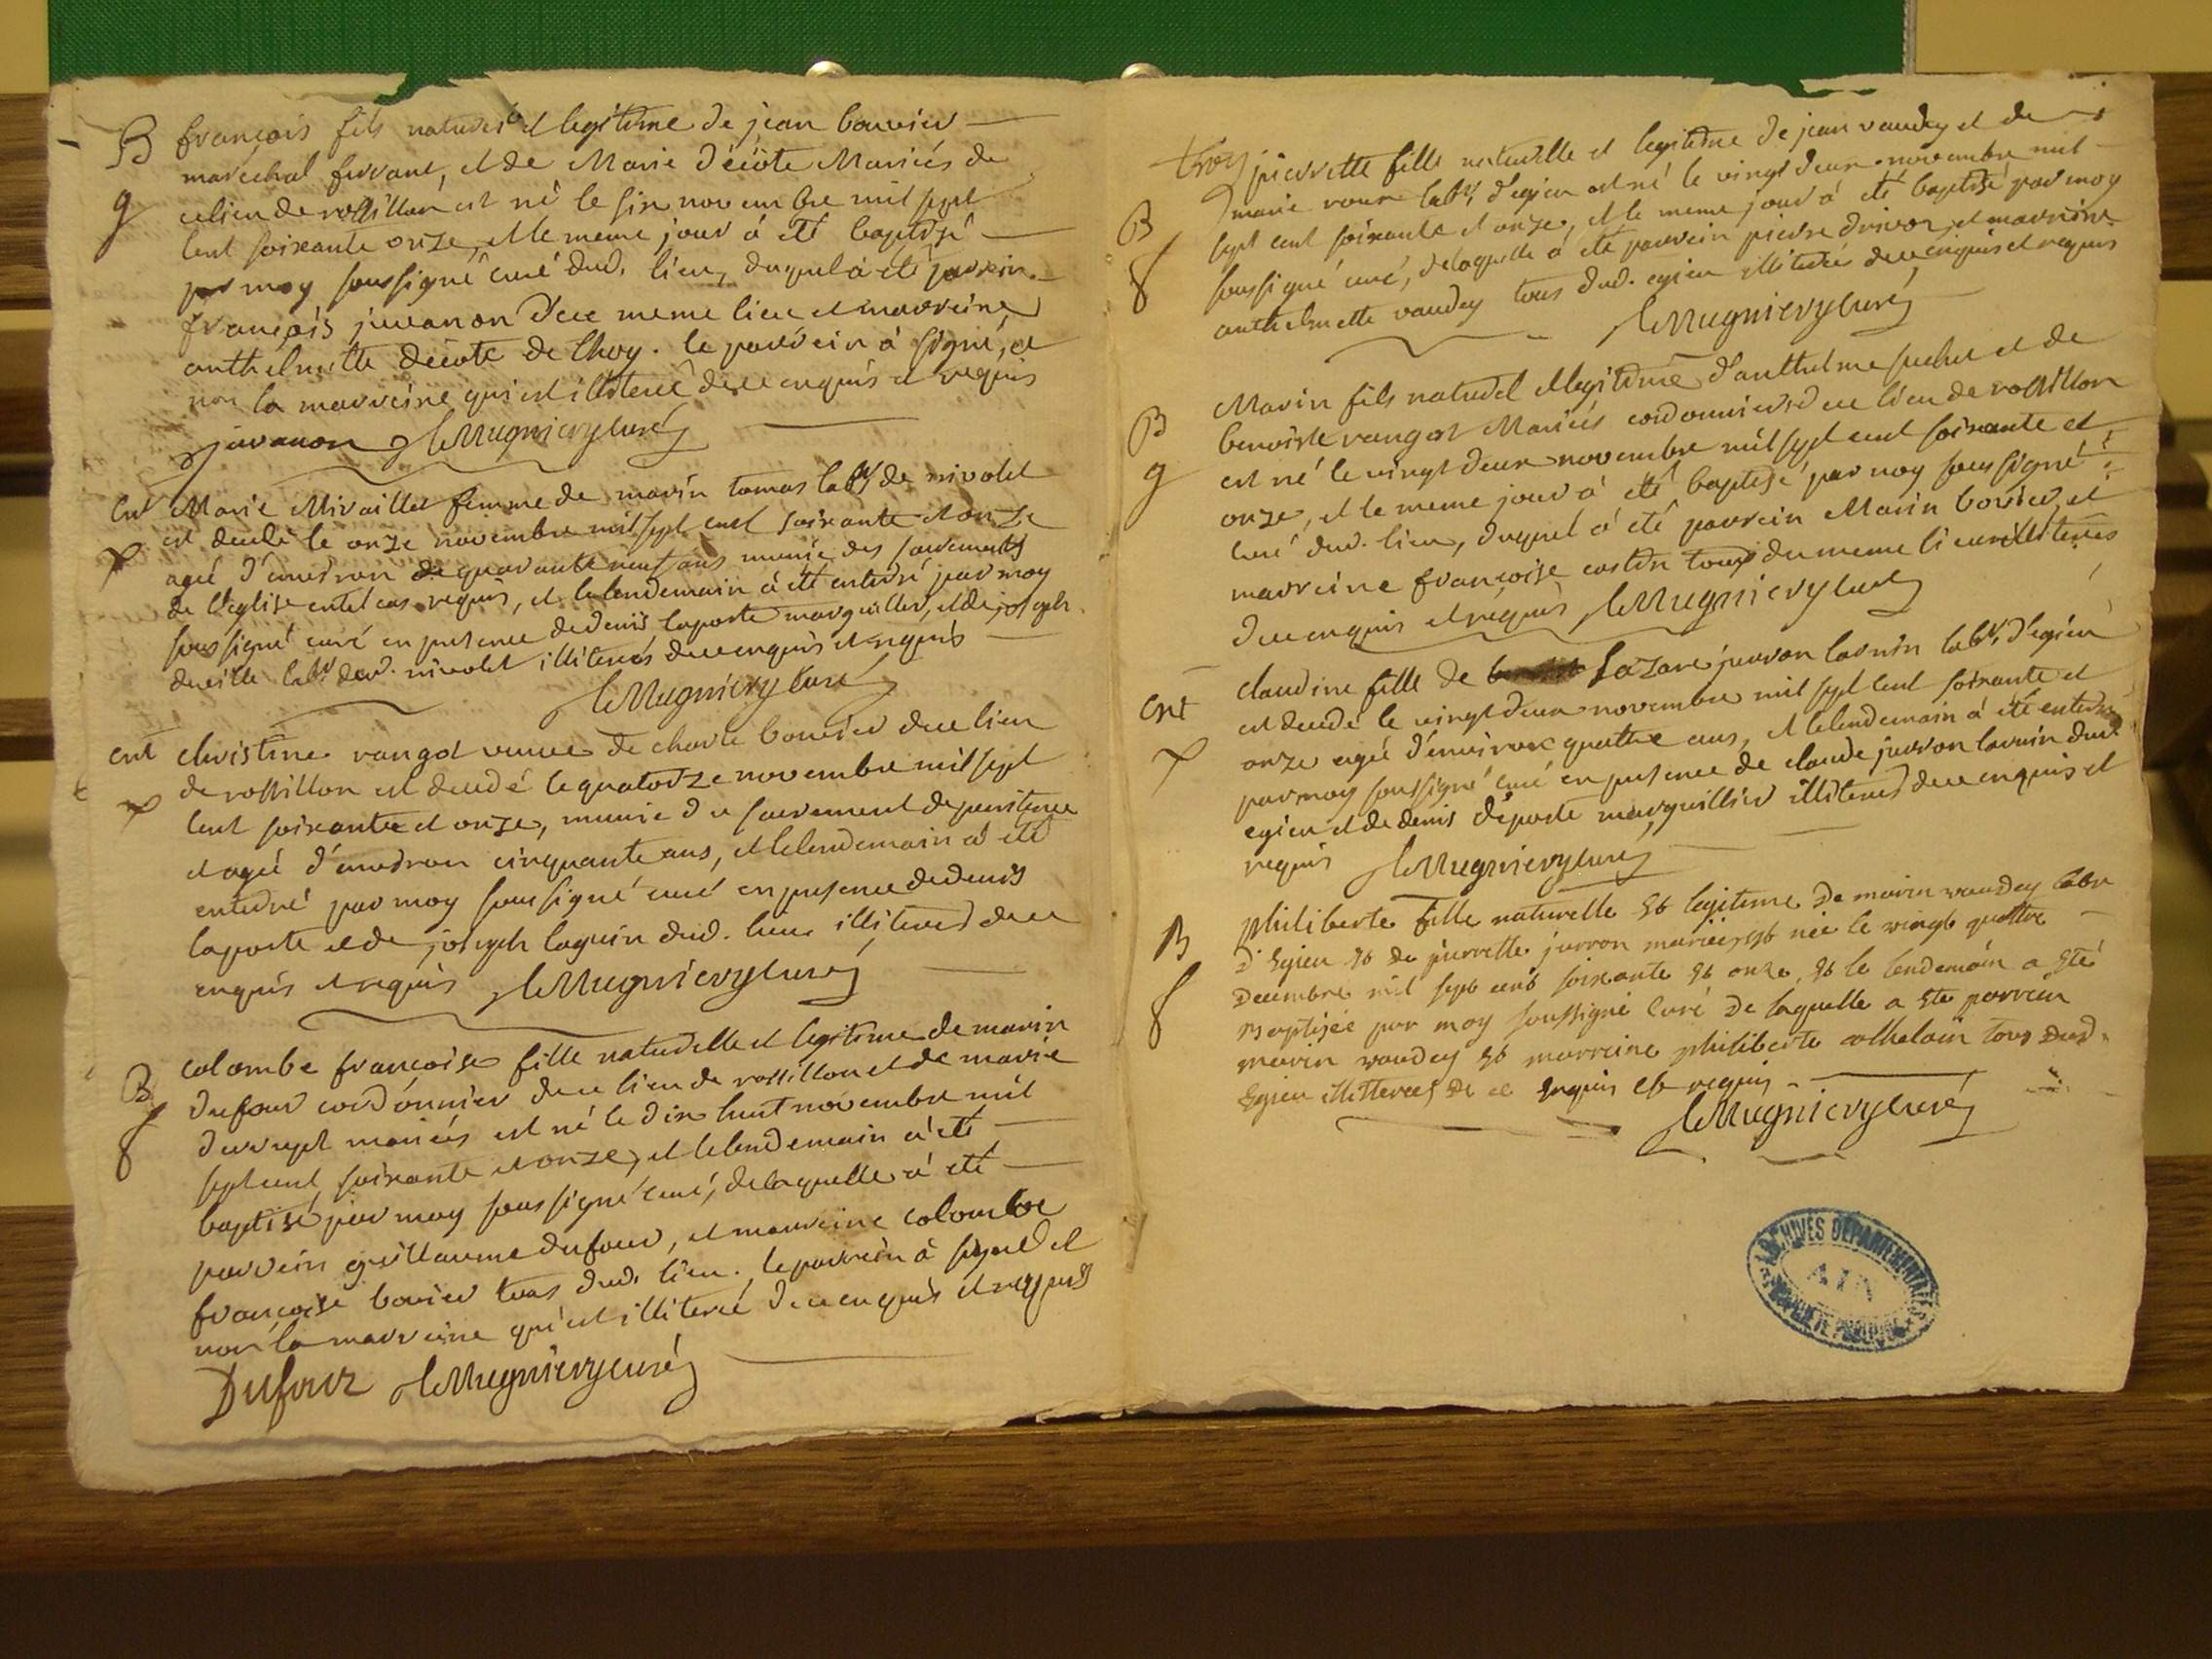 B françois fils naturel et legitime de jean bouvier
marechal ferrant, et de Marie décôte Mariés de
g celieu de rossillon est né le six novembre mil sept
cent soixante onze, et le meme jour à eté baptisé
par moy soussigné curé dud. lieu, duquel à eté parrein
françois juvanon dece meme lieu et marreine
anthelmette décote de Choy. le parrein à signé, et
non la marreine qui est illiterée dece enquis et requis
juvanon leMugnieryCuré
Ent Marie Miraillet femme de marin tomas labr de nivolet
est decedé le onze novembre mil sept cent soixante et onze
agée d'environ quarante neuf ans munie des sacrements
de l'eglise entel cas requis, et lelendemain à eté enterré par moy
soussigné curé en presence dedenis laporte marguillier, et de joseph
labr. dud. nivolet illiterés dece enquis et requis
leMugniery Curé
ent christine rangot veuve de charle bouvier dece lieu
de rossillon est decedé le quatorze novembre mil sept
cent soixante et onze, munie du sacrement de penitence
et agée d'environ cinquante ans, et lelendemain à eté
enterré par moy soussigné curé en presence dedenis
laporte et de joseph laguin dud. lieu illiterés dece
enquis et requis leMugnieryCuré
colombe françoise fille naturelle et legitime de marin
B dufour cordonnier dece lieu de rossillon et de marie
f mariés est né le dix huit novembre mil
sept cent soixante et onze, et lelendemain à eté
baptisé par moy soussigné curé, delaquelle à eté
parrein guillaume dufour, et marreine colombe
françoise bovier tous dud. lieu. le parrein à signé et
non la marreine qui est illiterée dece enquis et requis
Dufour leMugnieryCuré
pierrette fille naturelle et legitime de jean vaudey et de
marie roux labr. d'egieu est né le vingt deux novembre mil
B sept cent soixante et onze, et le meme jour à eté baptisé par moy
f soussigné curé, delaquelle à eté parrein pierre drivon et marreine
anthelmette vaudey tous dud. egieu illiterés dece enquis et requis
leMugnieryCuré
Marin fils naturel et legitime d'anthelme suchet et de
B benoiste rangot Mariés cordonniers dece lieu de rossillon
g est né le vingt deux novembre mil sept cent soixante et
onze, et le meme jour à eté baptisé par moy soussigné
curé dud. lieu, duquel à eté parrein Marin bovier, et
marreine françoise tous du meme lieu illiterés
dece enquis et requis leMugnieryCuré
claudine fille de Lazare juvron lavnin labr. d'egieu
Ent est decedé le vingt deux novembre mil sept cent soixante et
onze agée d'environ quatre ans, et lelendemain à eté enterré
par moy soussigné curé en presence de claude juvron lavnin dud.
egieu et de denis deporte marguillier illiterés dece enquis et
requis leMugnieryCuré
B philiberte fille naturelle et legitime de marin vaudey labr
d'Egieu et de pierrette juvron mariés est née le vingt quattre
f Decembre mil sept cent soixante et onze, et le lendemain a eté
Baptisée par moy soussigné Curé de laquelle a eté parrein
marin vaudey et marreine philiberte tous dud.
Egieu illitterés de ce Enquis et requis
leMugnieryCuré
ARCHIVES DÉPARTEMENTALES
AIN